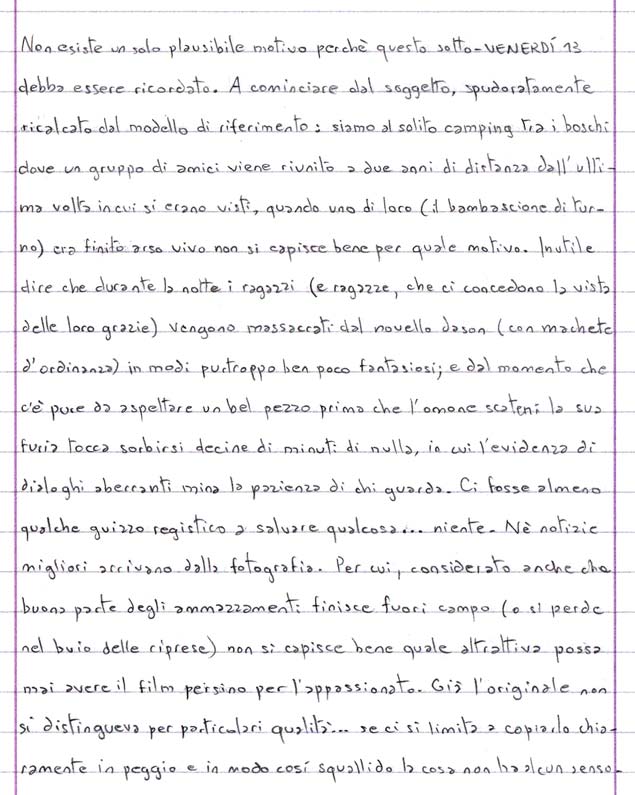 Non esiste un solo plausibile motivo perchè questo sotto-VENERDÍ 13
debba essere ricordato. A cominciare dal soggetto, spudoratamente
ricalcato dal modello di riferimento: siamo al solito camping tra i boschi
dove un gruppo di amici viene riunito a due anni di distanza dall'ulti-
ma volta in cui si erano visti, quando uno di loro (il bambascione di tur-
no) era finito arso vivo non si capisce bene per quale motivo. Inutile
dire che durante la notte i ragazzi (e ragazze, che ci concedono la vista
delle loro grazie) vengono massacrati dal novello Jason (con machete
d'ordinanza) in modi purtroppo ben poco fantasiosi; e dal momento che
c'è pure da aspettare un bel pezzo prima che l'omone scateni la sua
furia tocca sorbirsi decine di minuti di nulla, in cui l'evidenza di
dialoghi aberranti mina la pazienza di chi guarda. Ci fosse almeno
qualche guizzo registico a salvare qualcosa... niente. Nè notizie
migliori arrivano dalla fotografia. Per cui, considerato anche che
buona parte degli ammazzamenti finisce fuori campo (o si perde
nel buio delle riprese) non si capisce bene quale attrattiva possa
mai avere il film persino per l'appassionato. Già l'originale non
si distingueva per particolari qualità... se ci si limita a copiarlo chia-
ramente in peggio e in modo così squallido la cosa non ha alcun senso.